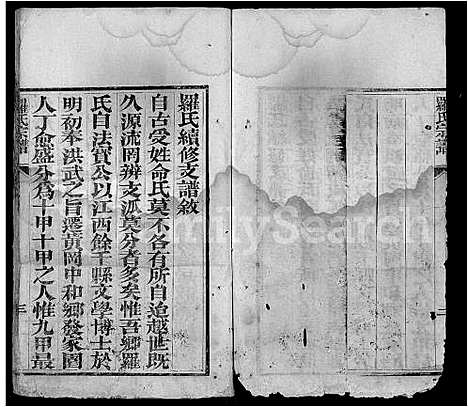 羅氏續修支譜敘
自古受姓命氏莫不各有所自迨越世既
久源流罔辨支派莫分者多矣惟吾鄉羅
氏自法寶公以江西餘干縣文學博士於
明初奉洪武之旨遷黃岡中和鄉發家園
人丁愈盛分為十甲十甲之人惟九甲最
羅氏宗譜
三
羅氏宗譜
FamilySearch